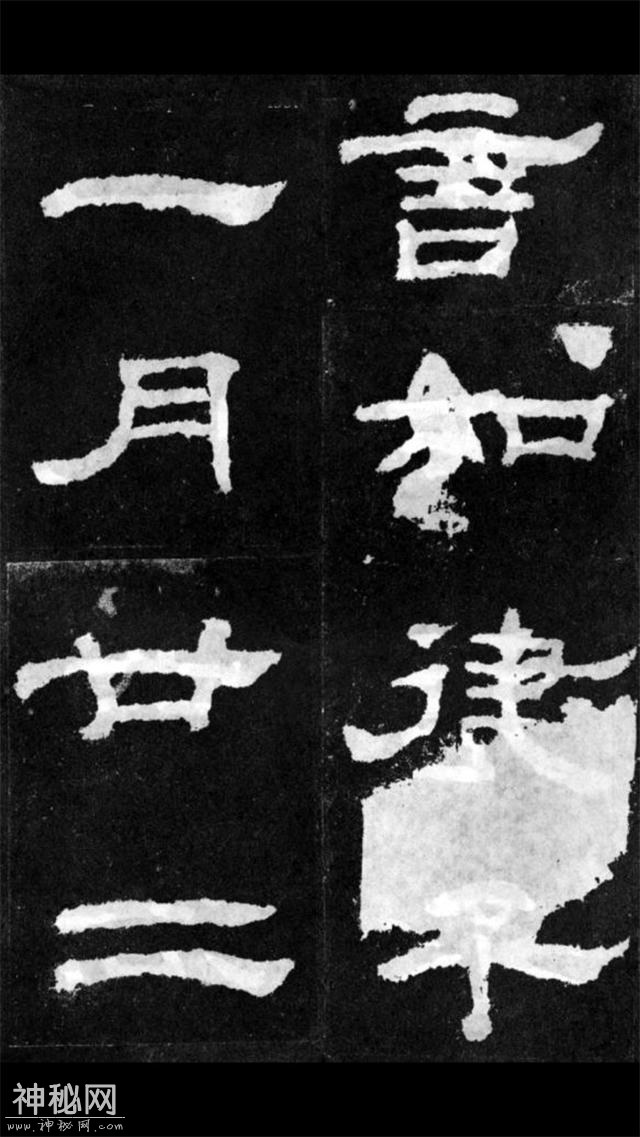 言如律
一月廿二
神秘网
www.神秘网.com